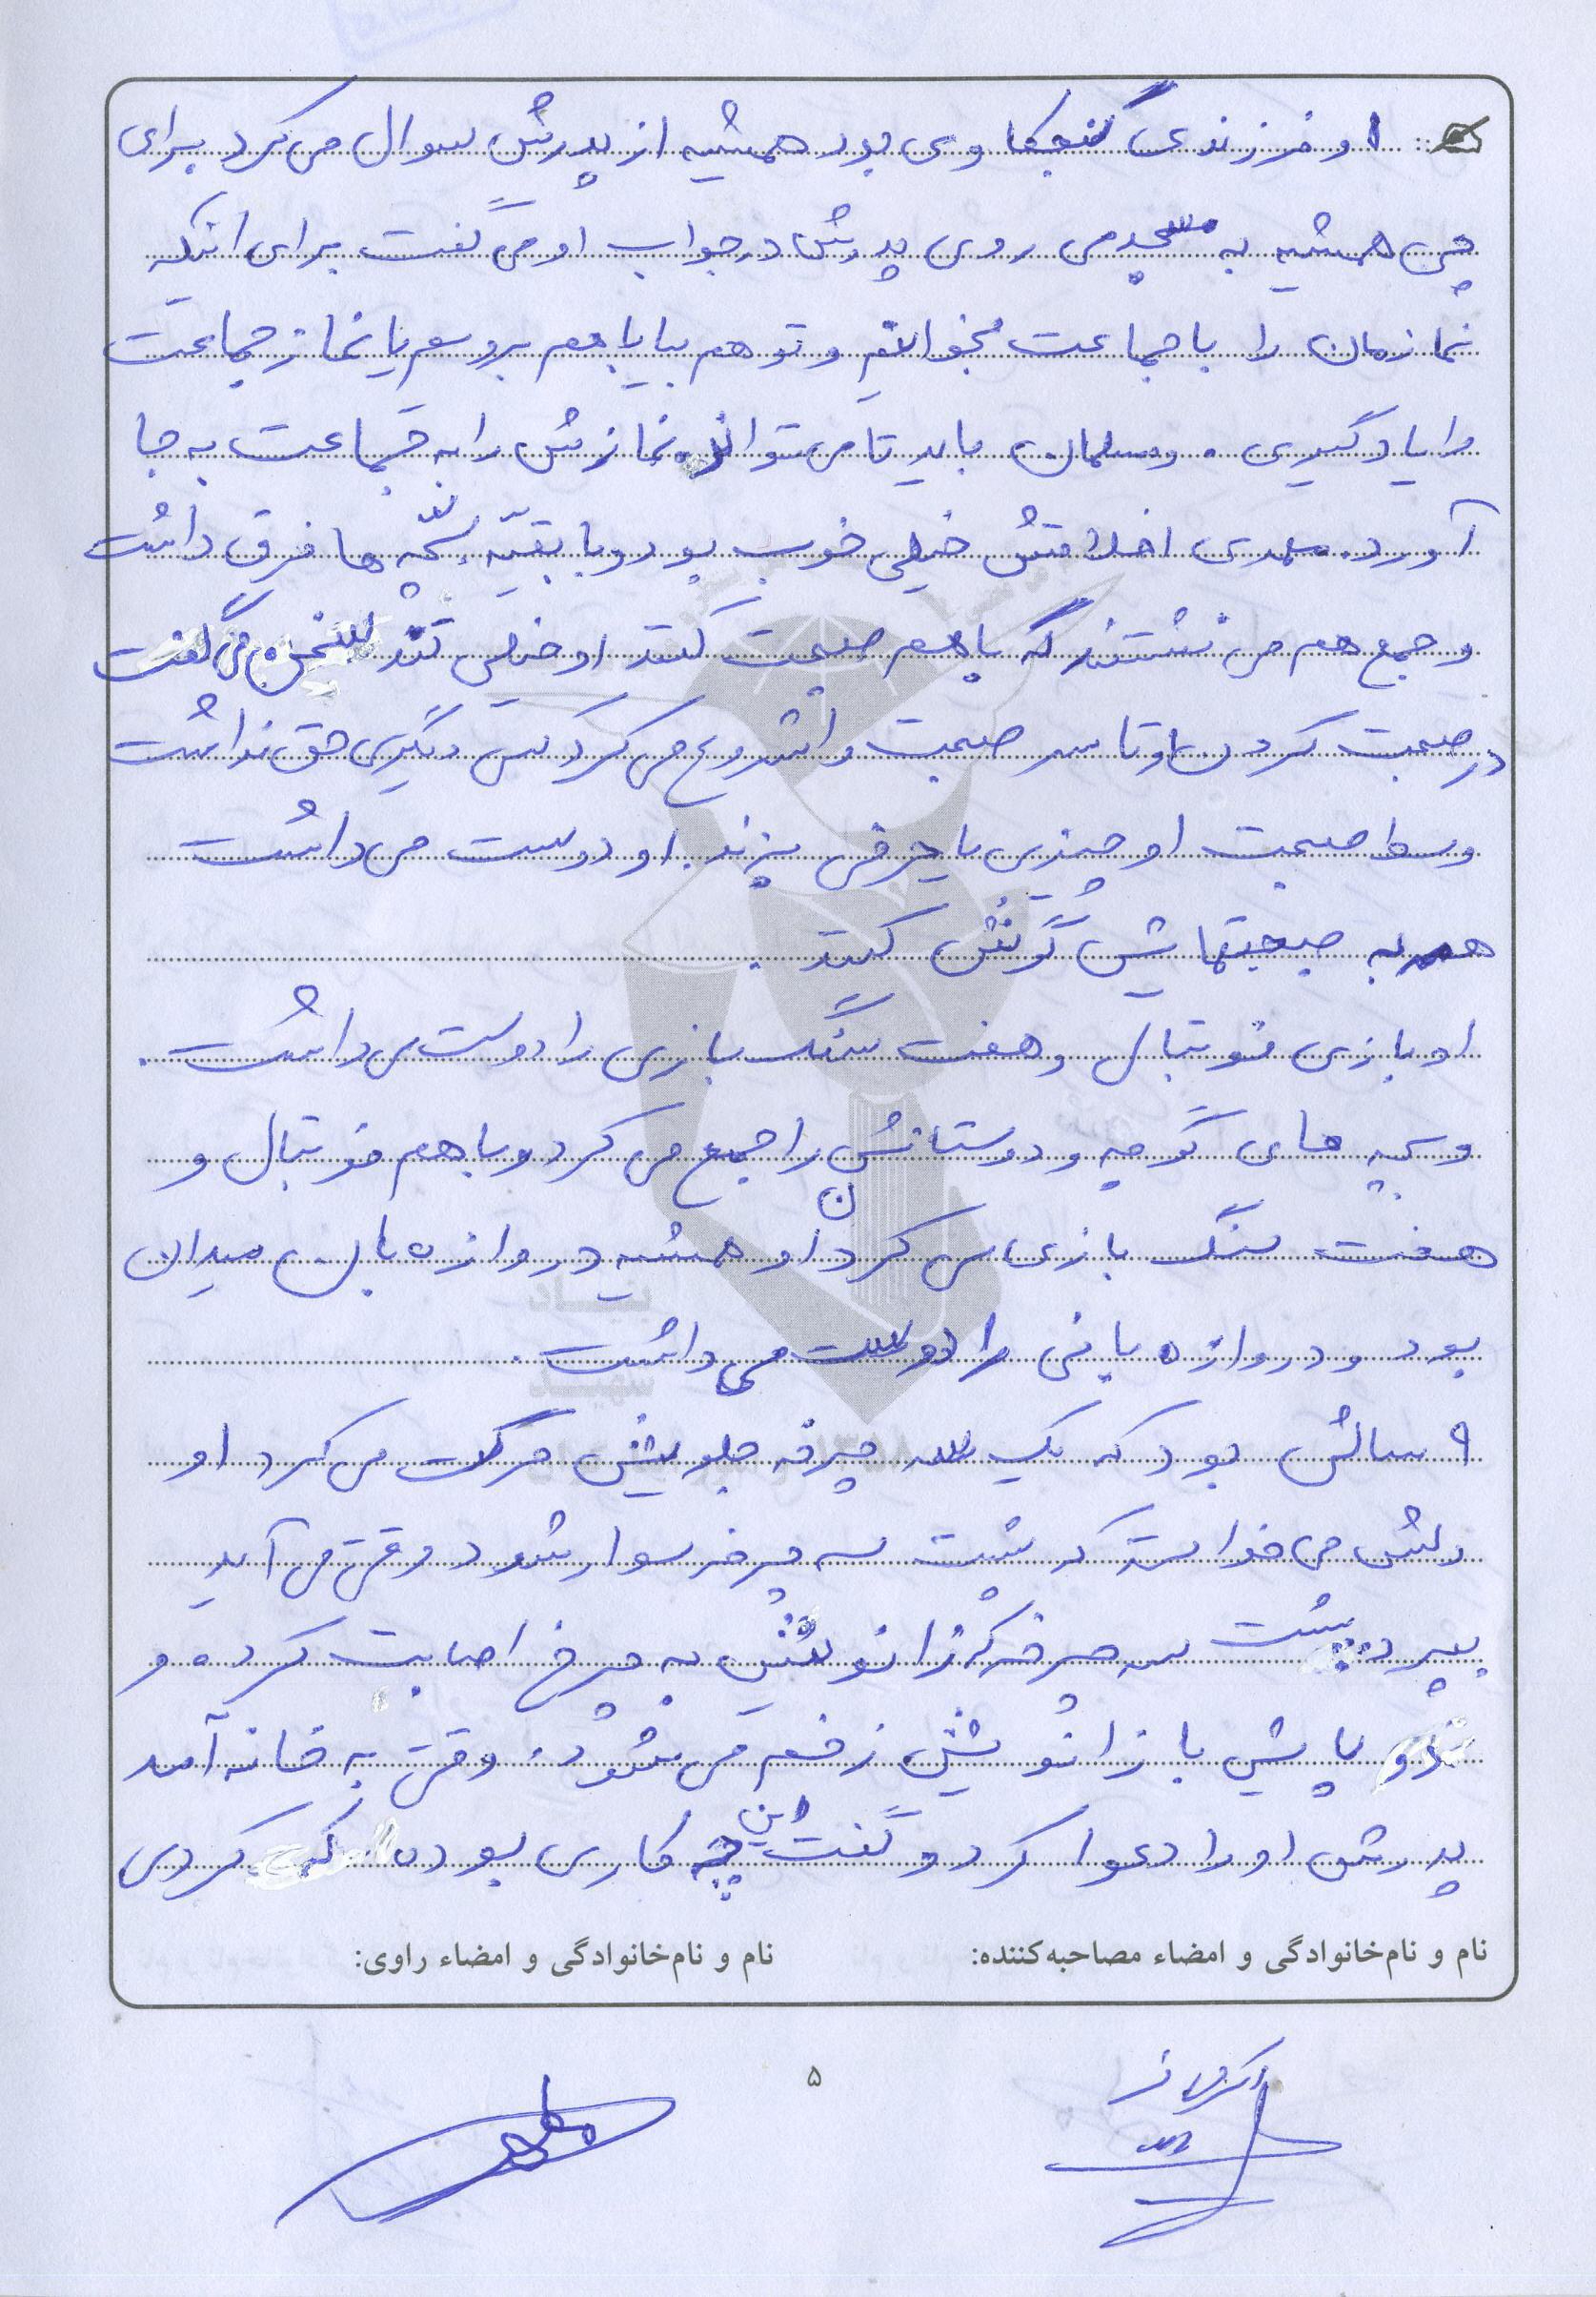 او فرزندی کنجکاوی بود همیشه از پدرش سوال می کرد برای
چی همیشه به مسجد می روی پدرش در جواب او می گفت برای اینکه
نمازمان را با جماعت بخوانیم و تو هم بیا با هم برویم تا نماز جماعت
را یاد گیری . مسلمان باید تا می تواند نمازش را به جماعت به جا
آورد. مهدی اخلاقش خیلی خوب بود و با بقیّه بچّه ها فرق داشت
و جمع هم می نشستند که با هم صحبت کنند او خیلی تند سخن می گفت
در صحبت کردن او تا سر صحبت را شروع می کرد کس دیگری حق نداشت
وسط صحبت او چیزی یا حرفی بزند. او دوست می داشت
همه به صحبتهایش گوش کنند .
او بازی فوتبال و هفت سنگ بازی را دوست می داشت .
و بچه های کوچه و دوستانش را جمع می کرد و با هم فوتبال و
هفت سنگ بازی می کردن او همیشه دروازه بان میدان
بود و دروازه بانی را دوست می داشت .
۹ سالش بود که یک سه چرخه جلویش حرکت می کرد او
دلش می خواست که پشت سه چرخه سوار شود وقتی می آید
بپرد پشت سه چرخه که زانویش به چرخ اصابت کرده و
پایش با زانویش زخم می شود. وقتی به خانه آمد
پدرش او را دعوا کرد و گفت این چه کاری بوده که کردی
نام و نام‌خانوادگی و امضاء مصاحبه‌کننده:
نام و نام‌خانوادگی و امضاء راوی:
۵